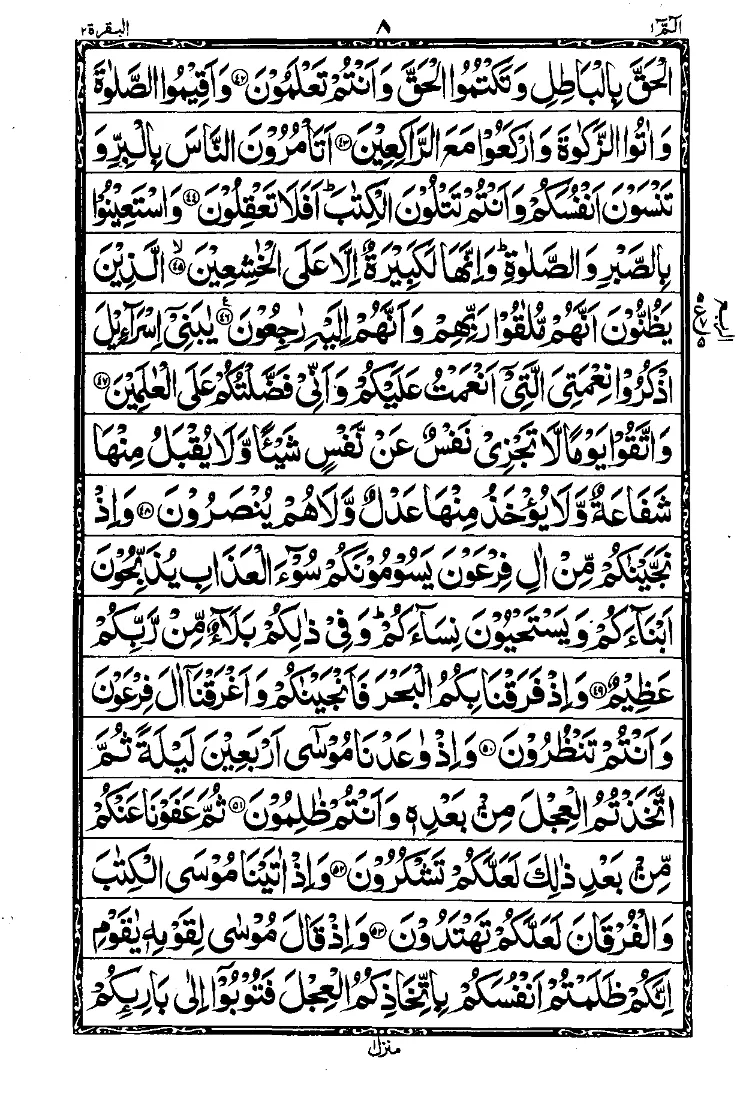 الٓمّٓ ١ ٨ البقرة ٢
الْحَقَّ بِالْبَاطِلِ وَتَكْتُمُوا الْحَقَّ وَاَنْتُمْ تَعْلَمُوْنَ ﴿٤٢﴾ وَاَقِيْمُوا الصَّلٰوةَ
وَاٰتُوا الزَّكٰوةَ وَارْكَعُوْا مَعَ الرّٰكِعِيْنَ ﴿٤٣﴾ اَتَاْمُرُوْنَ النَّاسَ بِالْبِرِّ وَ
تَنْسَوْنَ اَنْفُسَكُمْ وَاَنْتُمْ تَتْلُوْنَ الْكِتٰبَ ؕ اَفَلَا تَعْقِلُوْنَ ﴿٤٤﴾ وَاسْتَعِيْنُوْا
بِالصَّبْرِ وَالصَّلٰوةِ ؕ وَاِنَّهَا لَكَبِيْرَةٌ اِلَّا عَلَى الْخٰشِعِيْنَ ﴿٤٥﴾ۙ الَّذِيْنَ
يَظُنُّوْنَ اَنَّهُمْ مُّلٰقُوْا رَبِّهِمْ وَاَنَّهُمْ اِلَيْهِ رٰجِعُوْنَ ﴿٤٦﴾ع يٰبَنِيْٓ اِسْرَآءِيْلَ
اذْكُرُوْا نِعْمَتِيَ الَّتِيْٓ اَنْعَمْتُ عَلَيْكُمْ وَاَنِّيْ فَضَّلْتُكُمْ عَلَى الْعٰلَمِيْنَ ﴿٤٧﴾
وَاتَّقُوْا يَوْمًا لَّا تَجْزِيْ نَفْسٌ عَنْ نَّفْسٍ شَيْـًٔا وَّلَا يُقْبَلُ مِنْهَا
شَفَاعَةٌ وَّلَا يُؤْخَذُ مِنْهَا عَدْلٌ وَّلَا هُمْ يُنْصَرُوْنَ ﴿٤٨﴾ وَاِذْ
نَجَّيْنٰكُمْ مِّنْ اٰلِ فِرْعَوْنَ يَسُوْمُوْنَكُمْ سُوْٓءَ الْعَذَابِ يُذَبِّحُوْنَ
اَبْنَآءَكُمْ وَيَسْتَحْيُوْنَ نِسَآءَكُمْ ؕ وَفِيْ ذٰلِكُمْ بَلَآءٌ مِّنْ رَّبِّكُمْ
عَظِيْمٌ ﴿٤٩﴾ وَاِذْ فَرَقْنَا بِكُمُ الْبَحْرَ فَاَنْجَيْنٰكُمْ وَاَغْرَقْنَآ اٰلَ فِرْعَوْنَ
وَاَنْتُمْ تَنْظُرُوْنَ ﴿٥٠﴾ وَاِذْ وٰعَدْنَا مُوْسٰٓى اَرْبَعِيْنَ لَيْلَةً ثُمَّ
اتَّخَذْتُمُ الْعِجْلَ مِنْۢ بَعْدِهٖ وَاَنْتُمْ ظٰلِمُوْنَ ﴿٥١﴾ ثُمَّ عَفَوْنَا عَنْكُمْ
مِّنْۢ بَعْدِ ذٰلِكَ لَعَلَّكُمْ تَشْكُرُوْنَ ﴿٥٢﴾ وَاِذْ اٰتَيْنَا مُوْسَى الْكِتٰبَ
وَالْفُرْقَانَ لَعَلَّكُمْ تَهْتَدُوْنَ ﴿٥٣﴾ وَاِذْ قَالَ مُوْسٰى لِقَوْمِهٖ يٰقَوْمِ
اِنَّكُمْ ظَلَمْتُمْ اَنْفُسَكُمْ بِاتِّخَاذِكُمُ الْعِجْلَ فَتُوْبُوْٓا اِلٰى بَارِئِكُمْ
منزل ١